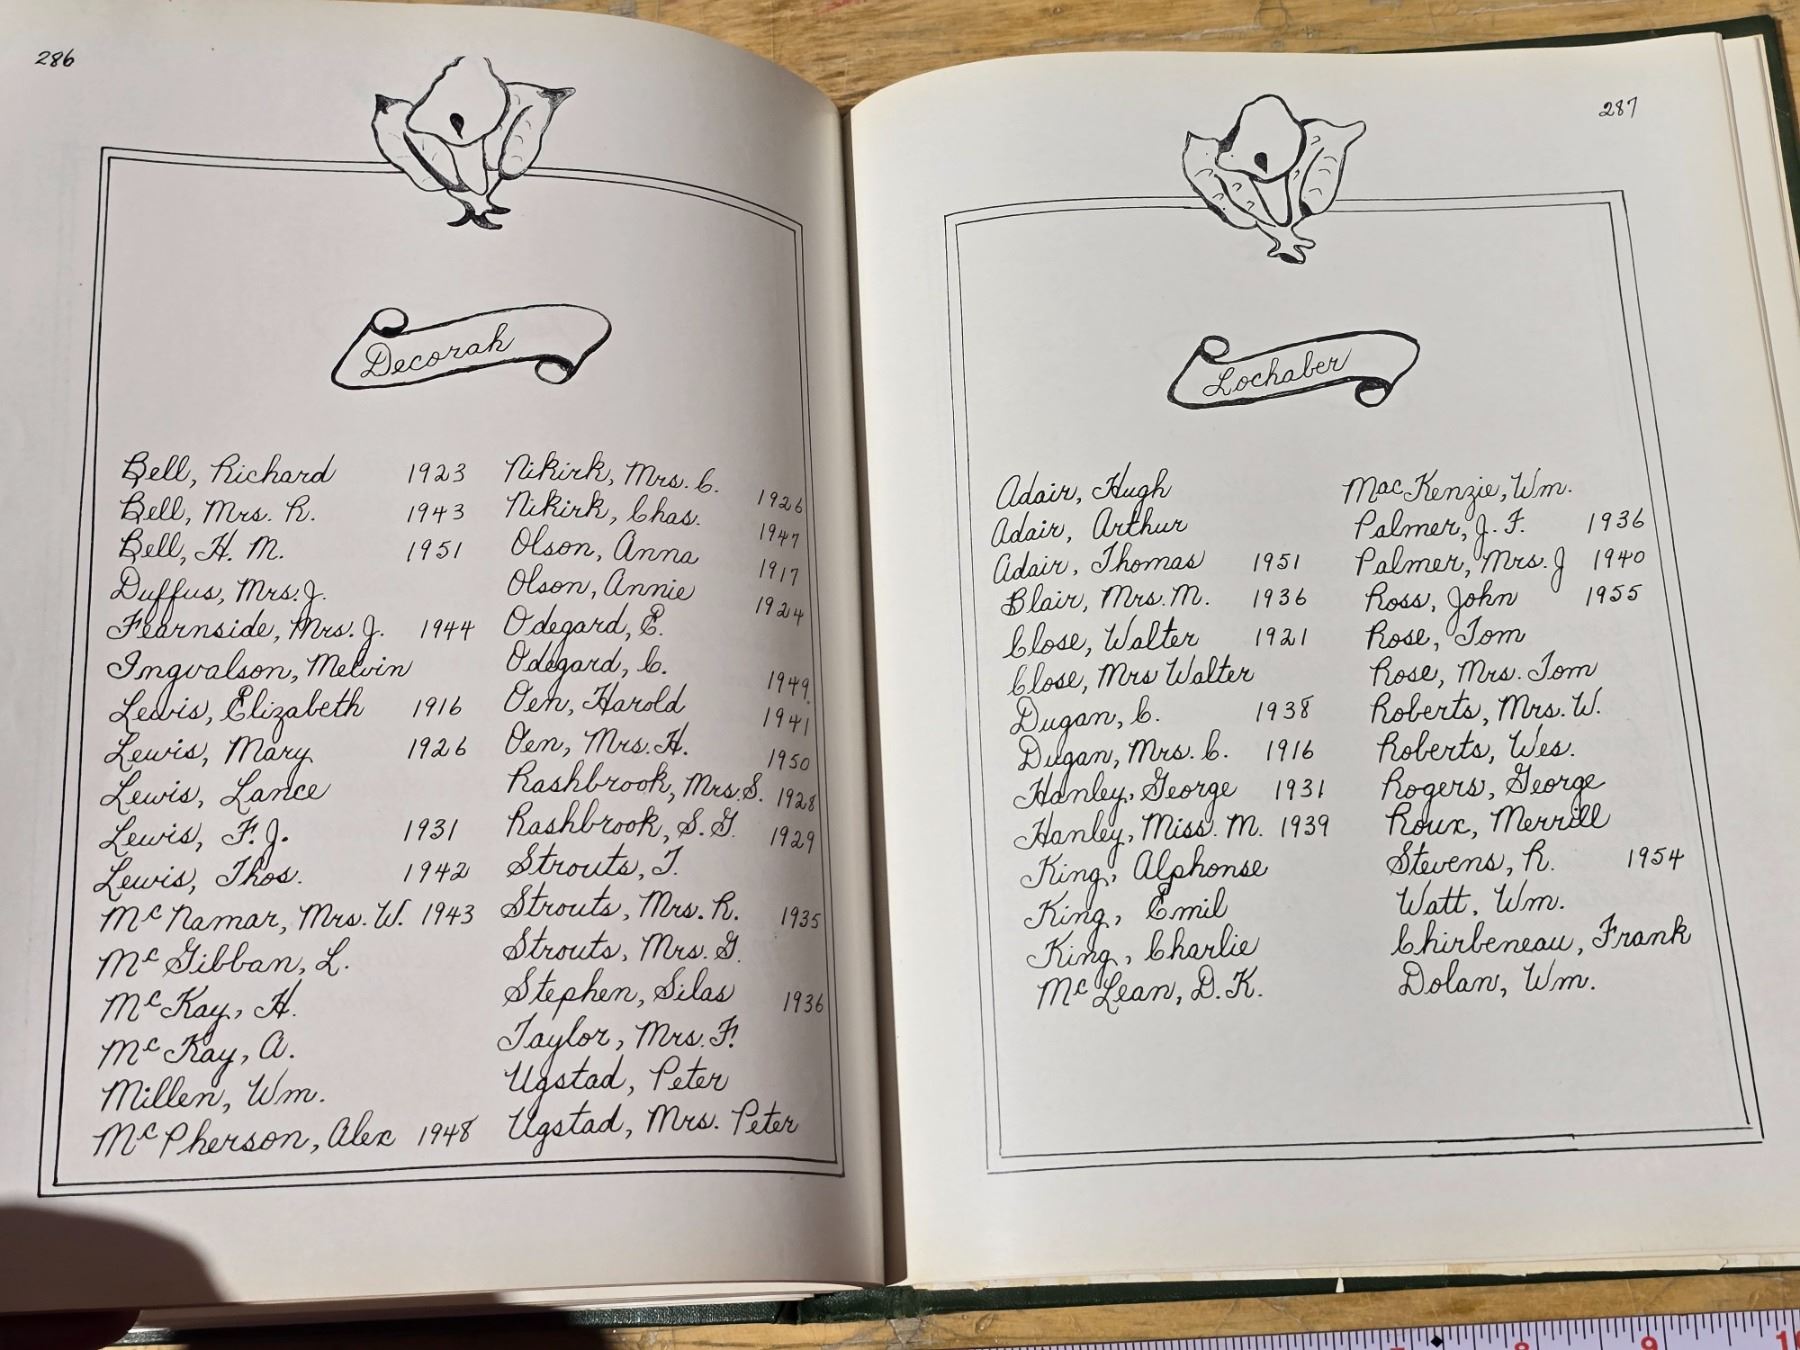 286
Decorah
Bell, Richard 1923
Bell, Mrs. R. 1943
Bell, H. M. 1951
Duffus, Mrs. J.
Fearnside, Mrs. J. 1944
Ingvalson, Melvin
Lewis, Elizabeth 1916
Lewis, Mary 1926
Lewis, Lance
Lewis, F. J. 1931
Lewis, Thos. 1942
McNamar, Mrs. W. 1943
McGibban, L.
McKay, H.
McKay, A.
Millen, Wm.
McPherson, Alex 1948
Nikirk, Mrs. C. 1926
Nikirk, Chas. 1947
Olson, Anna 1917
Olson, Annie 1924
Odegard, E.
Odegard, C. 1949
Oen, Harold 1941
Oen, Mrs. H. 1950
Rashbrook, Mrs. S. 1928
Rashbrook, S. G. 1929
Strouts, T.
Strouts, Mrs. R. 1935
Strouts, Mrs. G.
Stephen, Silas 1936
Taylor, Mrs. F.
Ugstad, Peter
Ugstad, Mrs. Peter
287
Lochaber
Adair, Hugh
Adair, Arthur
Adair, Thomas 1951
Blair, Mrs. M. 1936
Close, Walter 1921
Close, Mrs Walter
Dugan, C. 1938
Dugan, Mrs. C. 1916
Hanley, George 1931
Hanley, Miss. M. 1939
King, Alphonse
King, Emil
King, Charlie
McLean, D. K.
MacKenzie, Wm.
Palmer, J. F. 1936
Palmer, Mrs. J 1940
Ross, John 1955
Rose, Tom
Rose, Mrs. Tom
Roberts, Mrs. W.
Roberts, Wes.
Rogers, George
Roux, Merrill
Stevens, R. 1954
Watt, Wm.
Chirbeneau, Frank
Dolan, Wm.
9